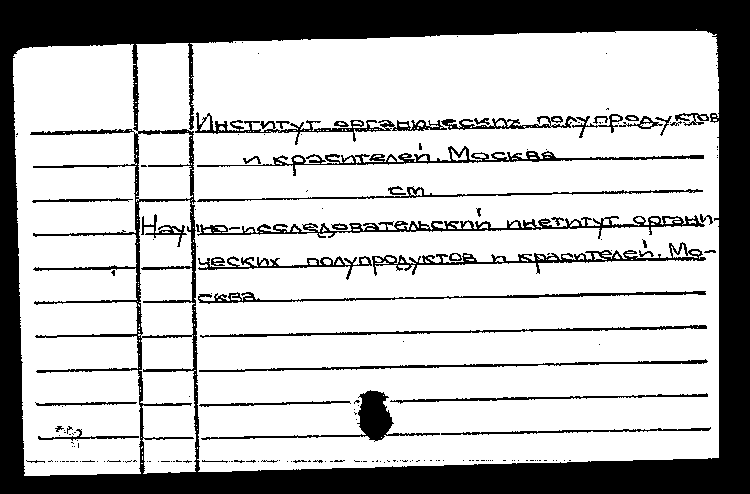 Институт органических полупродуктов
и красителей. Москва
см.
Научно-исследовательский институт органи-
ческих полупродуктов и красителей. Мо-
сква.